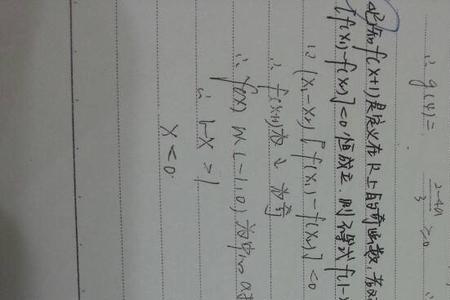 ∴ g(4) = (2-4a)/3 ≥ 0
已知 f(x+1) 是定义在 R 上的奇函数, 若对
[f(x₁)-f(x₂)] < 0 恒成立, 则不等式 f(1-
∵ (x₁-x₂)[f(x₁)-f(x₂)] < 0
∴ f(x+1) 为 为奇
∴ f(x) (-1,0)
∴ 1-x > 1
x < 0